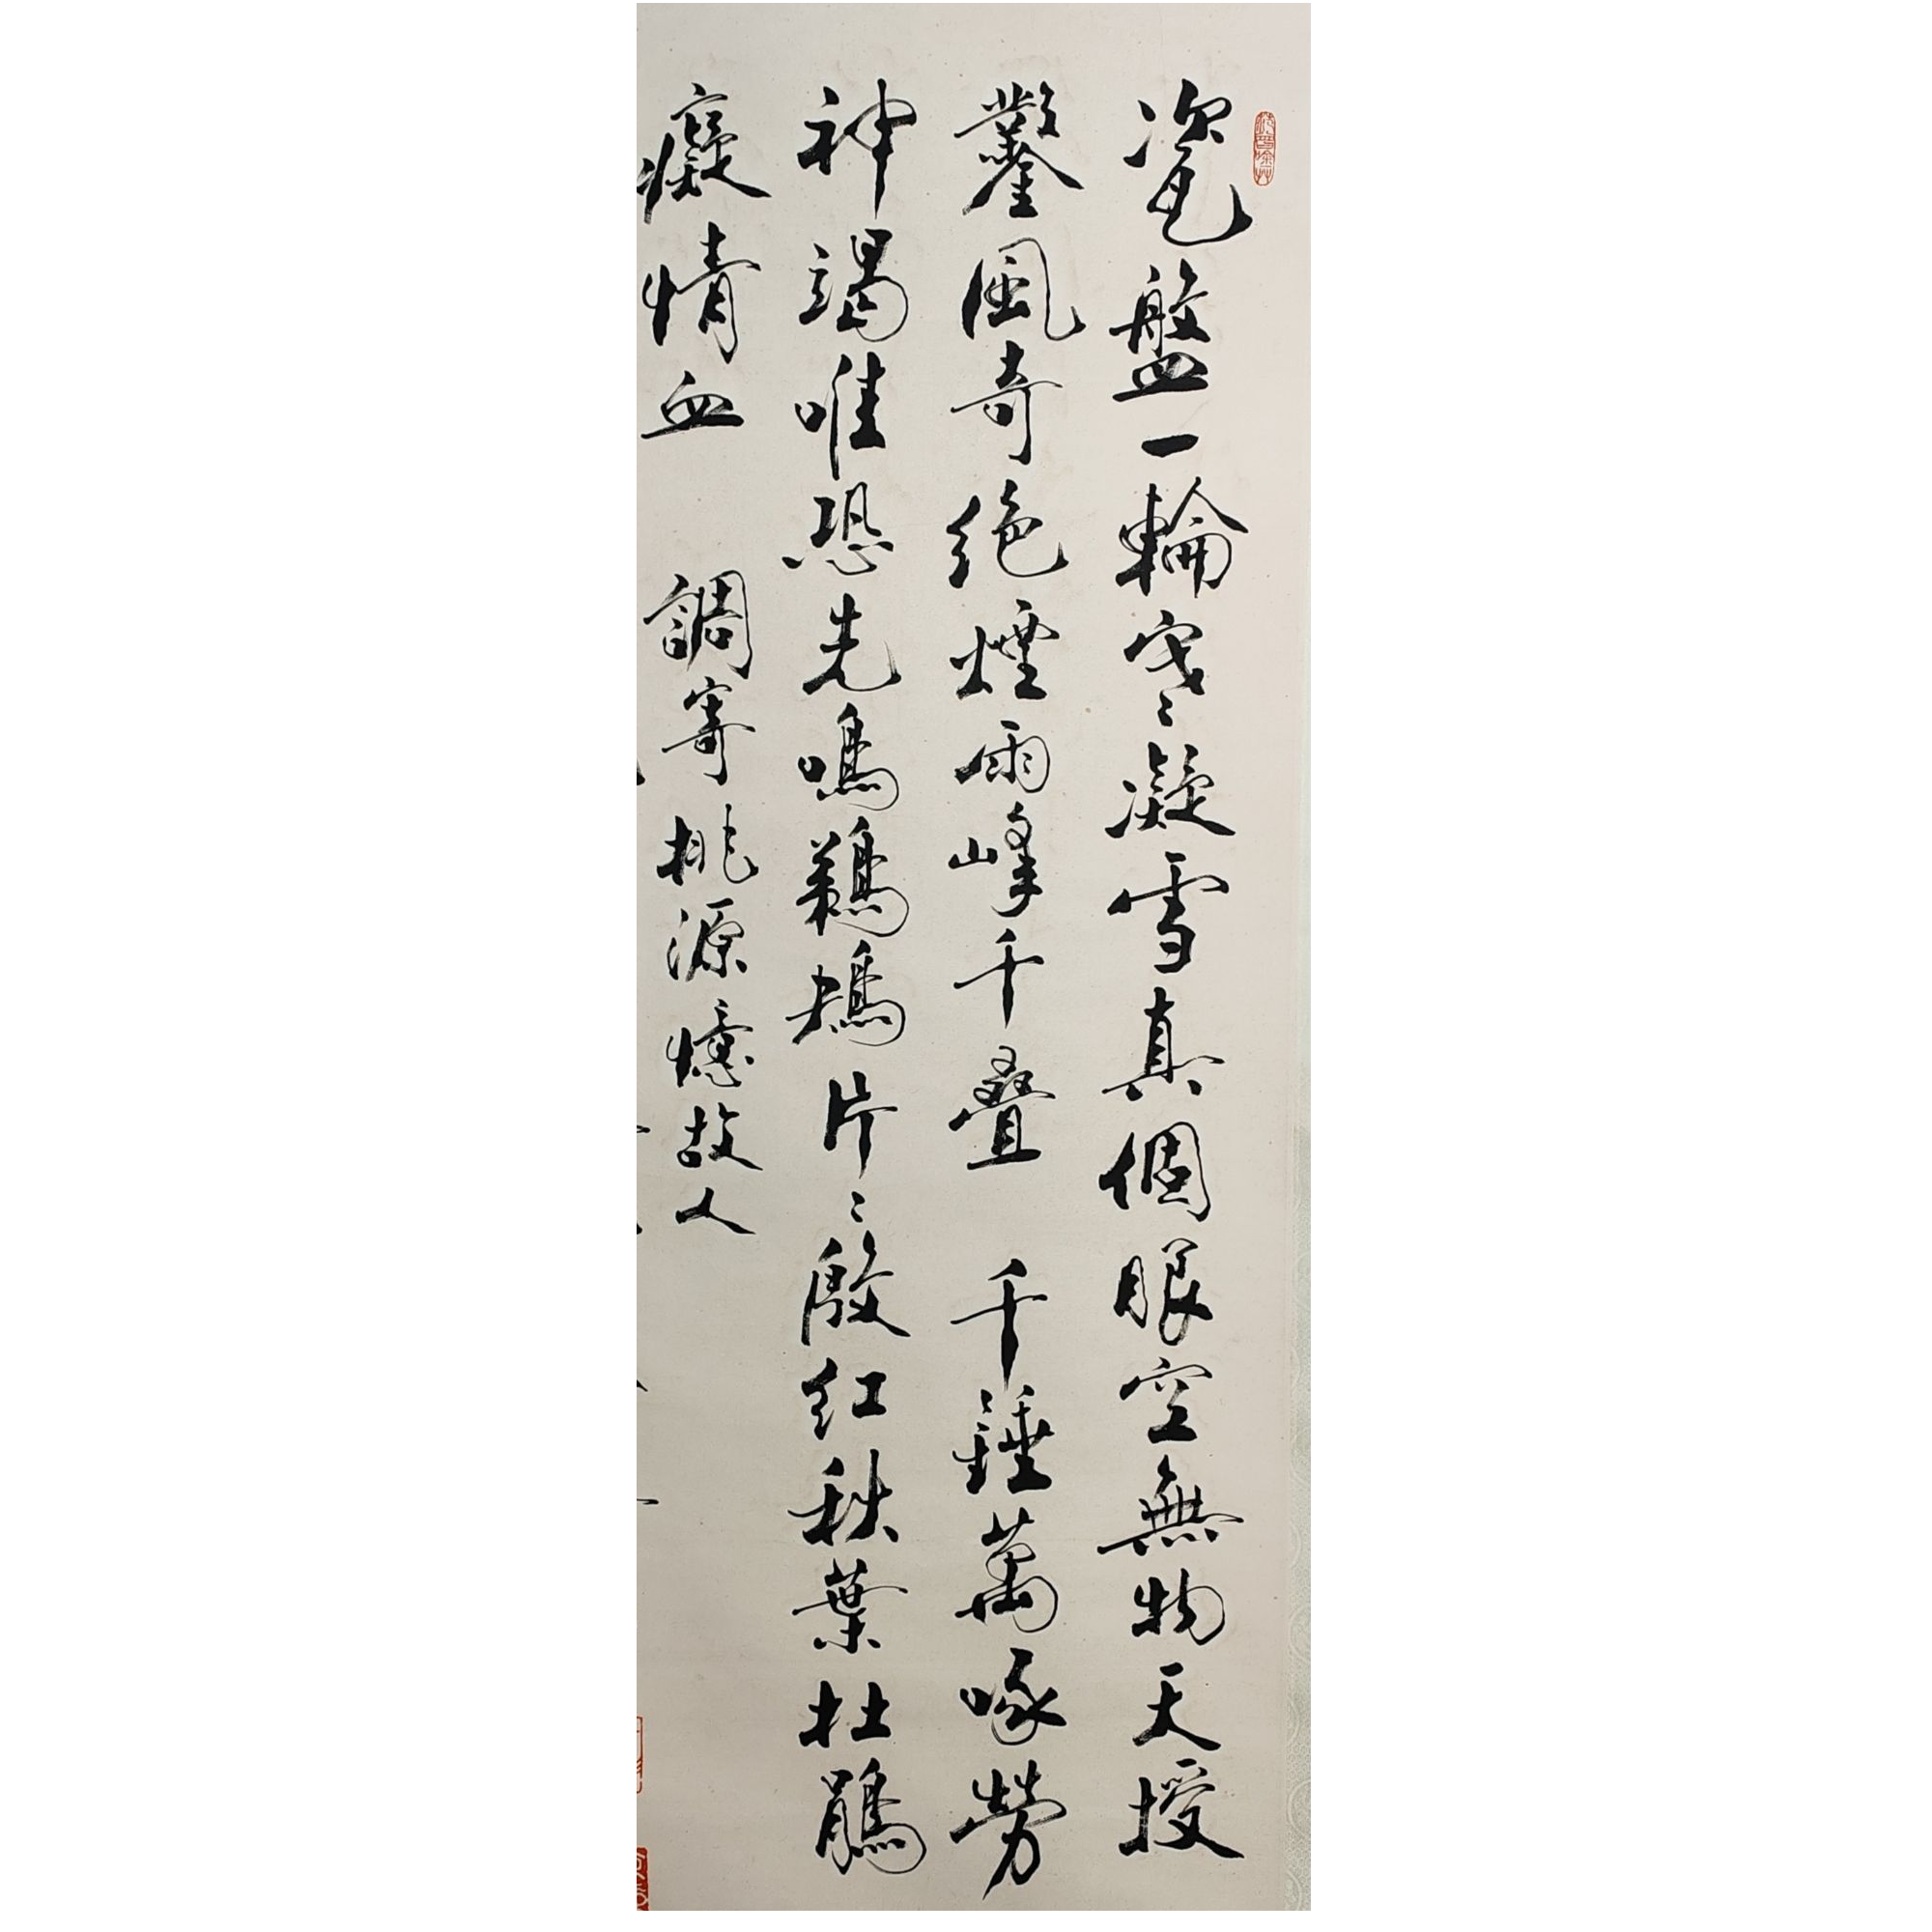 瓷盤一輪寒凝雪真個眼空無物天授
鑿風奇絕煙雨峰千叠 千錘萬啄勞
神竭唯恐先鳴鵜鴂片々殷紅秋葉杜鵑
癡情血 調寄桃源憶故人